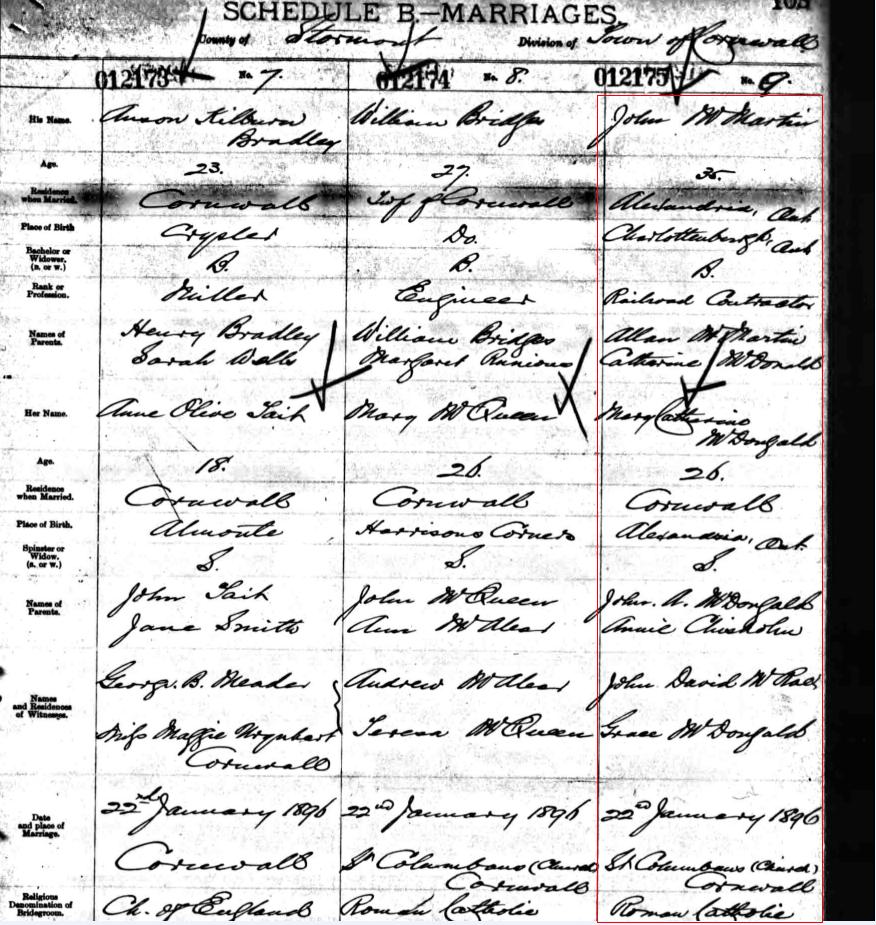 SCHEDULE B.—MARRIAGES.
County of Stormont Division of Town of Cornwall
012173 No. 7. 012174 No. 8. 012175 No. 9.
His Name. Anson Kilburn Bradley William Bridges John McMartin
Age. 23. 27. 35.
Residence when Married. Cornwall Twp of Cornwall Alexandria, Ont
Place of Birth Crysler Do. Charlottenburgh, Ont
Bachelor or Widower. (B. or W.) B. B. B.
Rank or Profession. Miller Engineer Railroad Contractor
Names of Parents. Henry Bradley William Bridges Allan McMartin
Sarah Wells Margaret Catherine McDonald
Her Name. Anne Olive Tait Mary McQueen Mary Catherine McDougald
Age. 18. 26. 26.
Residence when Married. Cornwall Cornwall Cornwall
Place of Birth. Almonte Harrisons Corners Alexandria, Ont.
Spinster or Widow. (S. or W.) S. S. S.
Names of Parents. John Tait John McQueen John. A. McDougald
Jane Smith Ann McAlear Annie Chisholm
Names and Residences of Witnesses. George. B. Meader Andrew McAlear John David McRae
Miss Maggie Urquhart Teresa McQueen Grace McDougald
Cornwall
Date and place of Marriage. 22nd January 1896 22nd January 1896 22nd January 1896
Cornwall St Columbans (Church) Cornwall St. Columbans (Church) Cornwall
Religious Denomination of Bridegroom. Ch. of England Roman Catholic Roman Catholic